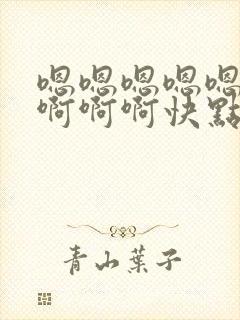 嗯嗯嗯嗯嗯
啊啊啊快點
青山葉子